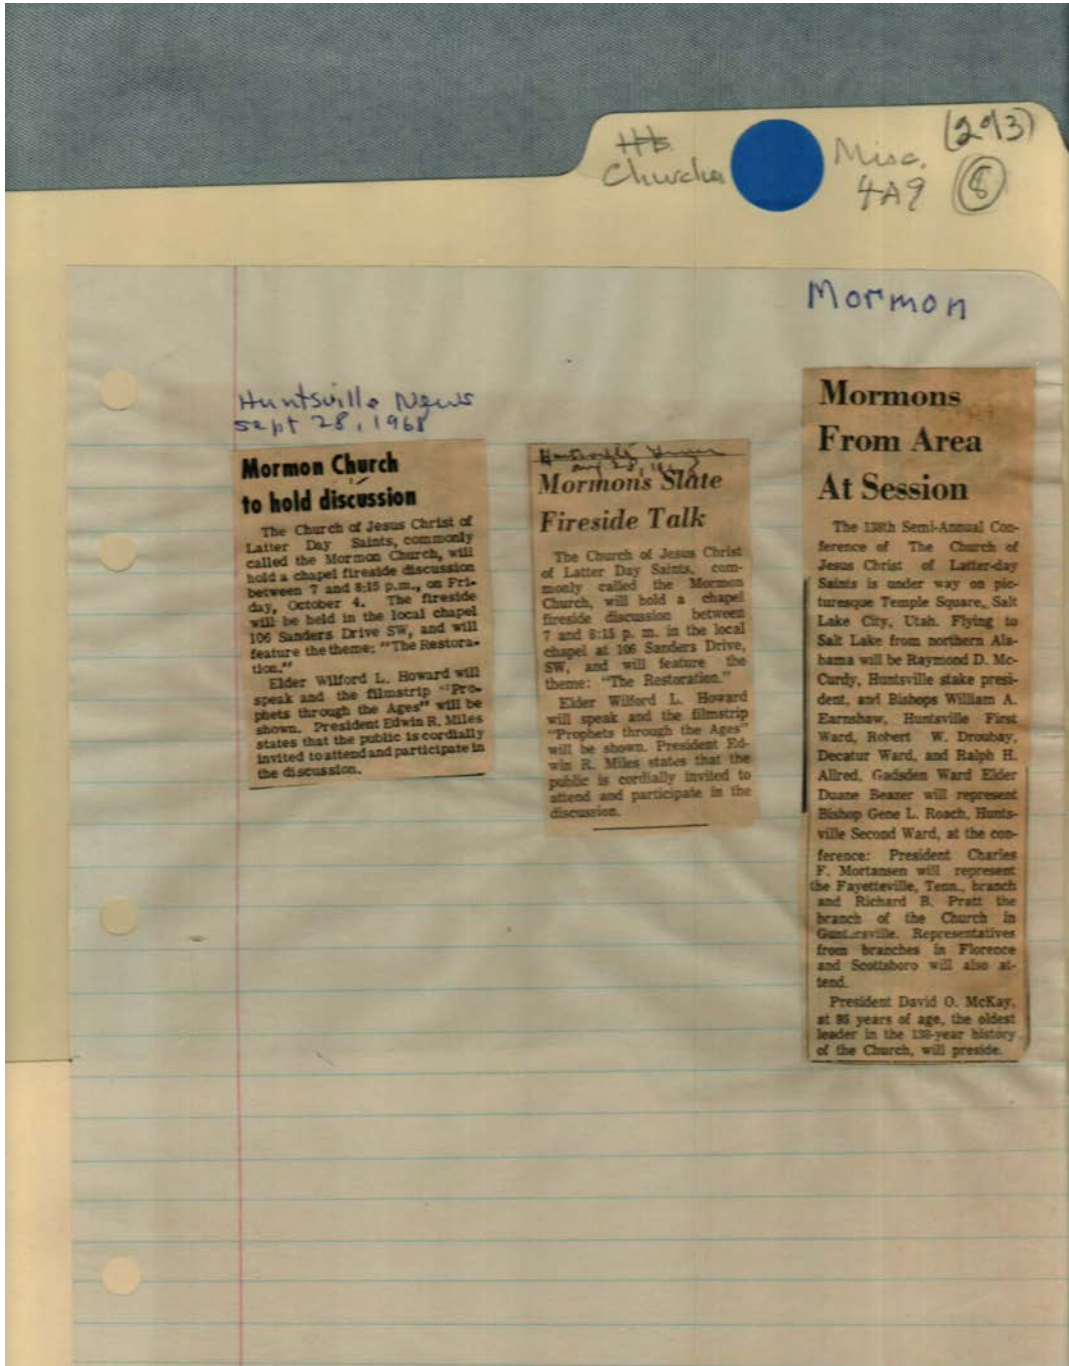 (2913)
Misc.
4A9
8
Mormon
Huntsville News
sept 28, 1968
Mormon Church
to hold discussion
The Church of Jesus Christ of
Latter Day Saints, commonly
called the Mormon Church, will
hold a chapel fireside discussion
between 7 and 8:15 p.m., on Fri-
day, October 4. The fireside
will be held in the local chapel
106 Sanders Drive SW, and will
feature the theme; "The Restora-
tion."
Elder Wilford L. Howard will
speak and the filmstrip "Pro-
phets through the Ages" will be
shown. President Edwin R. Miles
states that the public is cordially
invited to attend and participate in
the discussion.
Mormons Slate
Fireside Talk
The Church of Jesus Christ
of Latter Day Saints, com-
monly called the Mormon
Church, will hold a chapel
fireside discussion between
7 and 8:15 p. m. in the local
chapel at 106 Sanders Drive,
SW, and will feature the
theme: "The Restoration."
Elder Wilford L. Howard
will speak and the filmstrip
"Prophets through the Ages"
will be shown. President Ed-
win R. Miles states that the
public is cordially invited to
attend and participate in the
discussion.
Mormons
From Area
At Session
The 138th Semi-Annual Con-
ference of The Church of
Jesus Christ of Latter-day
Saints is under way on pic-
turesque Temple Square, Salt
Lake City, Utah. Flying to
Salt Lake from northern Ala-
bama will be Raymond D. Mc-
Curdy, Huntsville stake presi-
dent, and Bishops William A.
Earnshaw, Huntsville First
Ward, Robert W. Droubay,
Decatur Ward, and Ralph H.
Allred, Gadsden Ward Elder
Duane Beazer will represent
Bishop Gene L. Roach, Hunts-
ville Second Ward, at the con-
ference: President Charles
F. Mortansen will represent
the Fayetteville, Tenn., branch
and Richard B. Pratt the
branch of the Church in
Guntersville. Representatives
from branches in Florence
and Scottsboro will also at-
tend.
President David O. McKay,
at 95 years of age, the oldest
leader in the 138-year history
of the Church, will preside.